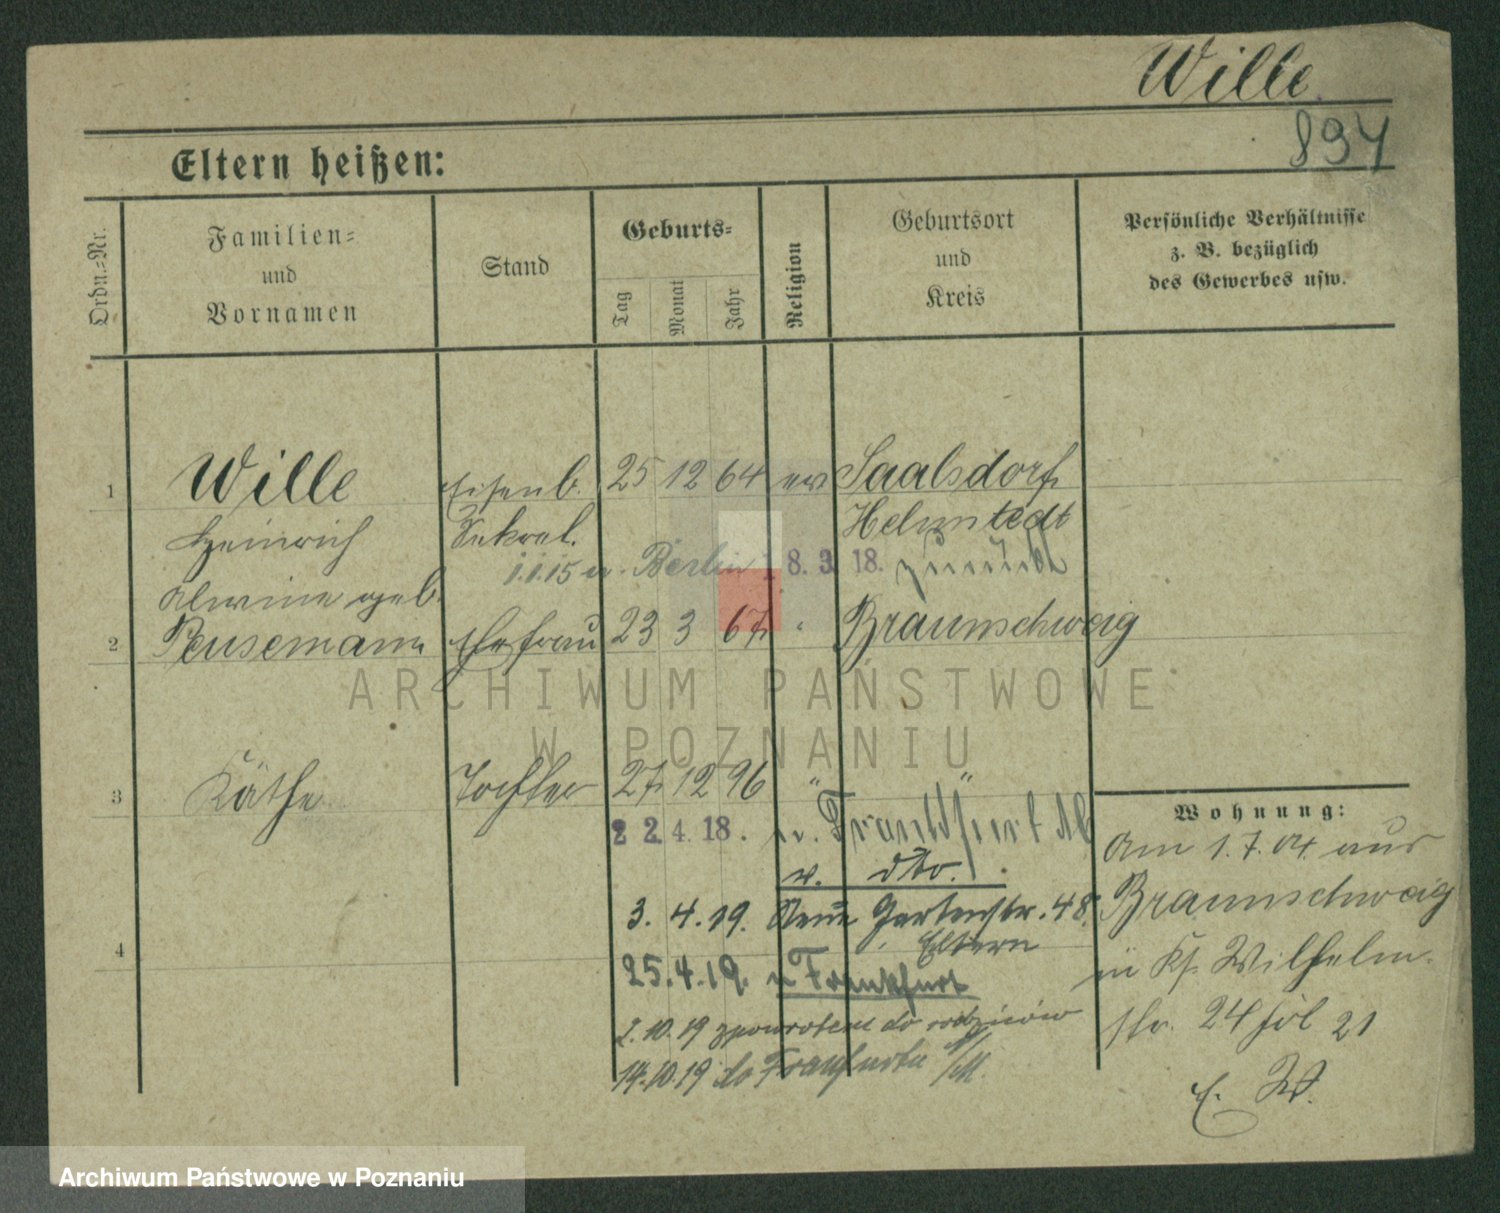 Wille.
894
Eltern heißen:
Ordn.=Nr.
Familien=
und
Vornamen
Stand
Geburts=
Tag
Monat
Jahr
Religion
Geburtsort
und
Kreis
Persönliche Verhältnisse
z. B. bezüglich
des Gewerbes usw.
1 Wille Eisenb. 25 12 64 ev Saalsdorf
Heinrich Sekret. Helmstedt
1.1.15 n. Berlin 18. 3. 18. zurück
Alwine geb.
2 Peusemann Ehefrau 23 3 67 " Braunschweig
ARCHIWUM PAŃSTWOWE
W POZNANIU
3 Käthe Tochter 27 12 96 " "
2 2. 4. 18. n. Frankfurt
v. dto.
3. 4. 19. Neue Gartenstr. 48.
Eltern
4
25. 4. 19. n Frankfurt
2.10.19 zpowrotem do rodziców
14.10.19 do Frankfurtu /M.
Wohnung:
Am 1.7.04 aus
Braunschweig
in Wilhelm-
str. 24 21
E. W.
Archiwum Państwowe w Poznaniu